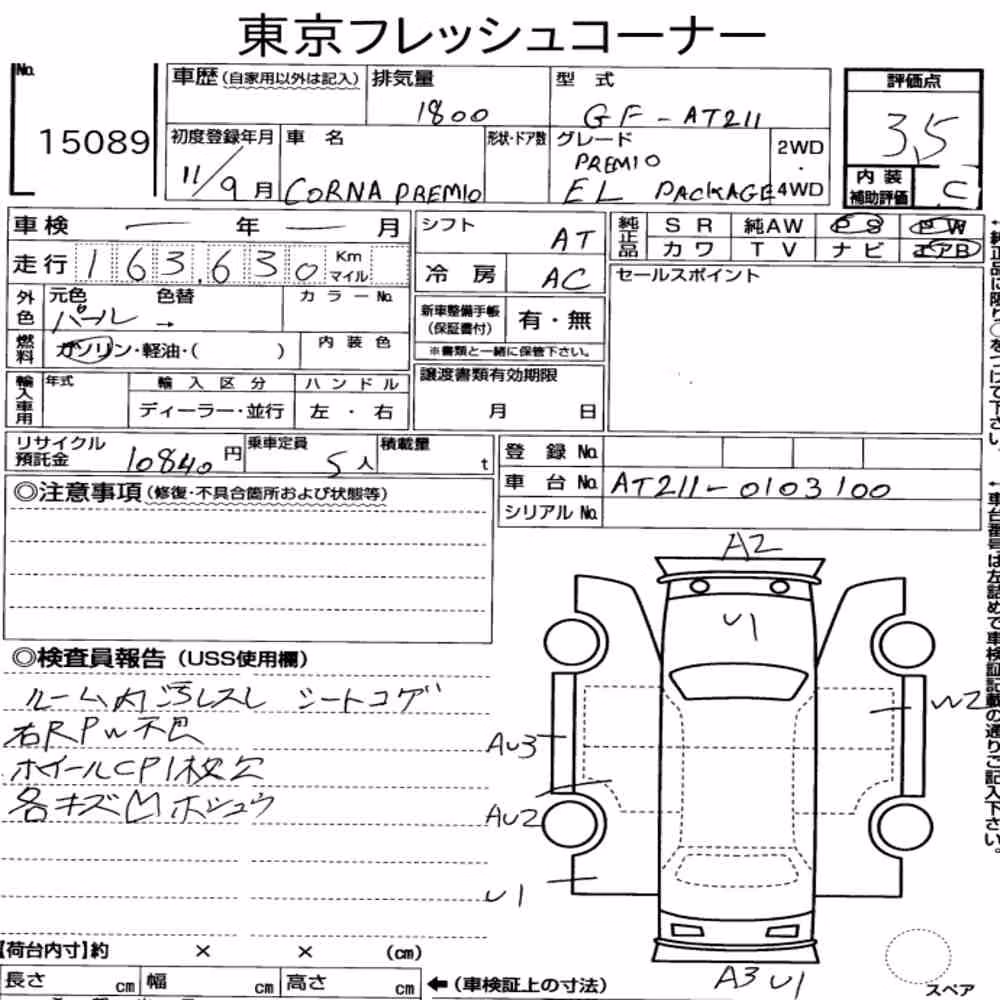 東京フレッシュコーナー
No.
15089
車歴 (自家用以外は記入)
排気量
1800
型式
GF-AT211
評価点
3.5
初度登録年月
11/9月
車名
CORNA PREMIO
形状・ドア数
グレード
PREMIO
EL PACKAGE
2WD
・
4WD
内装
補助評価
C
車検 ー 年 ー 月
シフト
AT
純正品
SR 純AW PS PW
カワ TV ナビ エアB
走行 163,630 Km マイル
冷房 AC
セールスポイント
外色
元色 色替 カラーNo.
パール →
新車整備手帳
(保証書付)
有・無
※書類と一緒に保管下さい。
燃料
ガソリン・軽油・( )
内装色
輸入車用
年式
輸入区分
ハンドル
ディーラー・並行
左・右
譲渡書類有効期限
月 日
リサイクル
預託金
10840円
乗車定員
5人
積載量
t
登録No.
車台No. AT211-0103100
シリアルNo.
◎注意事項 (修復・不具合箇所および状態等)
◎検査員報告 (USS使用欄)
ルーム内汚レスレ シートコゲ
右RPW不良
ホイールCP1枚欠
各キズ凹ホシュウ
A2
U1
W2
AU3
AU2
U1
A3 U1
スペア
【荷台内寸】約 × × (cm)
長さ cm 幅 cm 高さ cm
←(車検証上の寸法)
↑純正品に限り○をつけて下さい。
↑車台番号は左詰めで車検証記載の通りご記入下さい。